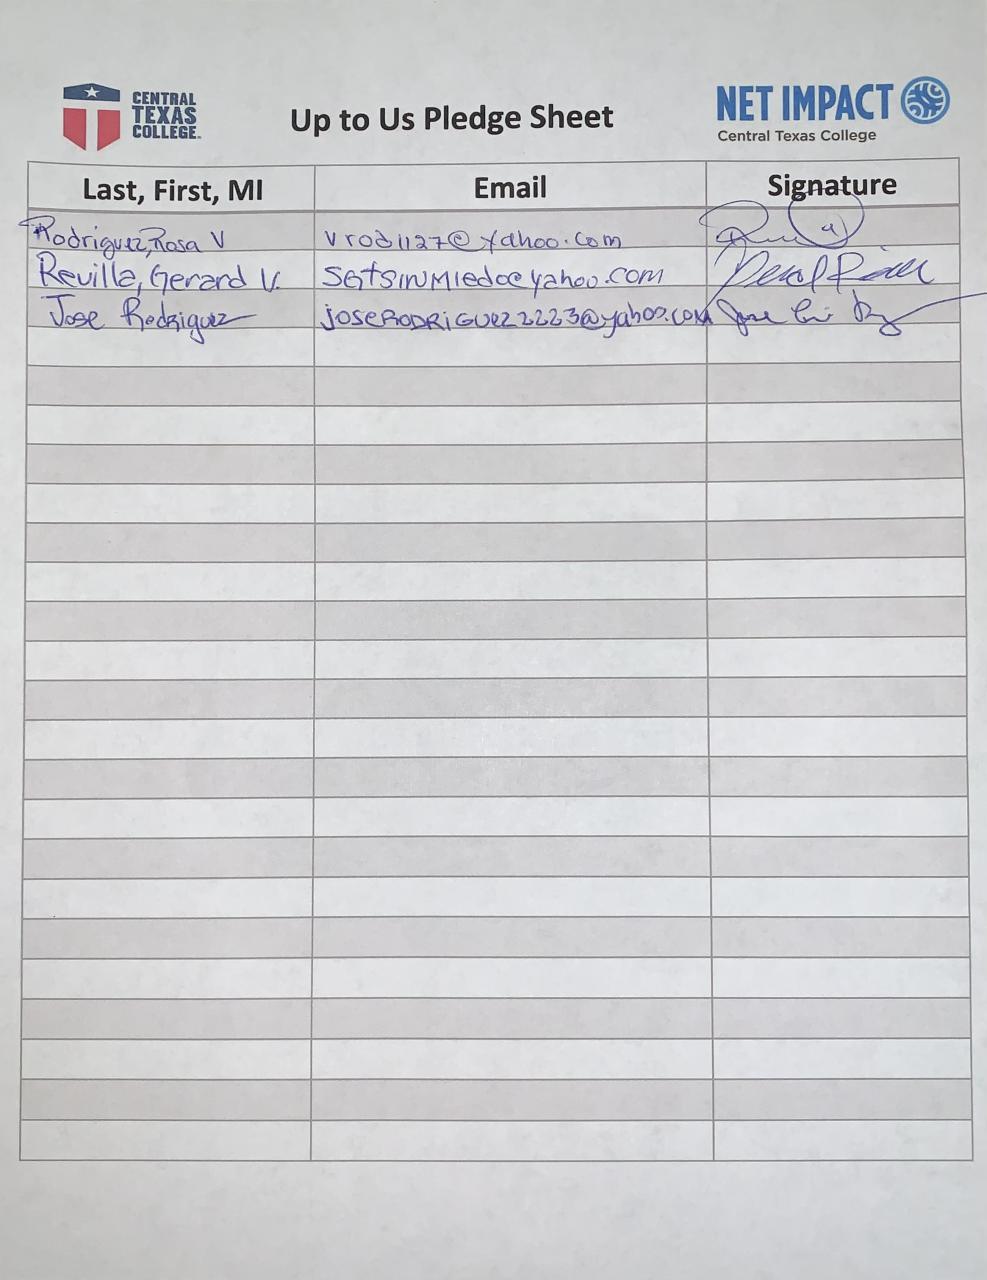 CENTRAL
TEXAS
COLLEGE
Up to Us Pledge Sheet
NET IMPACT
Central Texas College
Last, First, MI Email Signature
Rodriguez, Rosa V vrod1127@yahoo.com
Revilla, Gerard V. SGTSINMIEDO@yahoo.com
Jose Rodriguez JOSERODRIGUEZ2223@yahoo.com